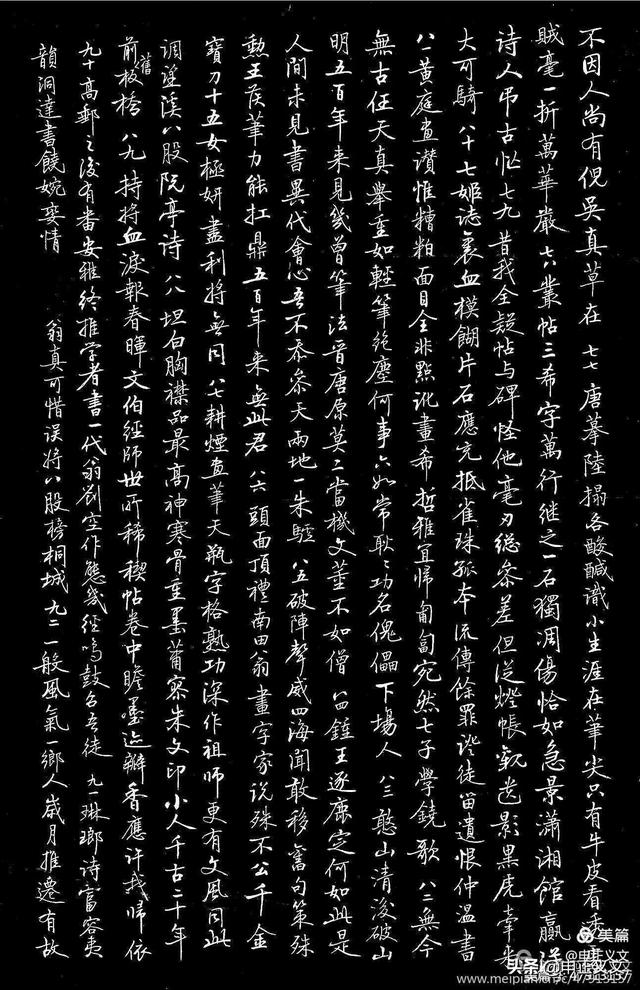 不因人尚有倪吳真草在 七七唐摹陸搨各酸醎識小生涯在筆尖只有牛皮看透
賊毫一折萬華嚴 六 叢帖三希字萬行继之一石獨凋傷恰如急景瀟湘館贏得
诗人弔古忙 七九 昔我全疑帖与碑怪他毫刃總參差但從燈帳觀遺影黑虎牽来
大可騎 八十 七姬誌裏血模餬片石應充抵雀珠孤本流傳餘罪證徒留遺恨仲溫書
八一 黃庭畫讚惟糟粕面目全非點訛畫希哲雅宜歸匍匐宛然七子學鐃歌 八二 無今
無古任天真舉重如輕筆絕塵何事六如常耿々功名傀儡下場人 八三 憨山清後破山
明五百年来見幾曾筆法晉唐原莫二當機文董不如僧 八四 鍾王逐鹿定何如此是
人間未見書異代會心吾不忝參天兩地一朱驢 八五 破陣聲威四海聞敢移舊句策殊
勳王侯筆力能扛鼎五百年来無此君 八六 頭面頂禮南田翁畫字家說殊不公千金
寶刀十五女極妍盡利將無同 八七 耕煙畫筆天瓶字格熟功深作祖師更有文風同此
調望溪八股阮亭诗 八八 坦白胸襟品最高神寒骨重墨蕭寥朱文印小人千古二十年
前舊板橋 八九 持將血淚報春暉文伯經師世所稀禊帖卷中瞻墨迹瓣香應許我歸依
九十 高郵之後有番安雅終推學者書一代翁劉空作態幾經鳴鼓召吾徒 九一 琳瑯诗富容夷
韻洞達書饒婉孌情 翁真可惜误將八股榜桐城 九二 一般風氣一鄉人歲月推遷有故
美篇
头条
www.meipian